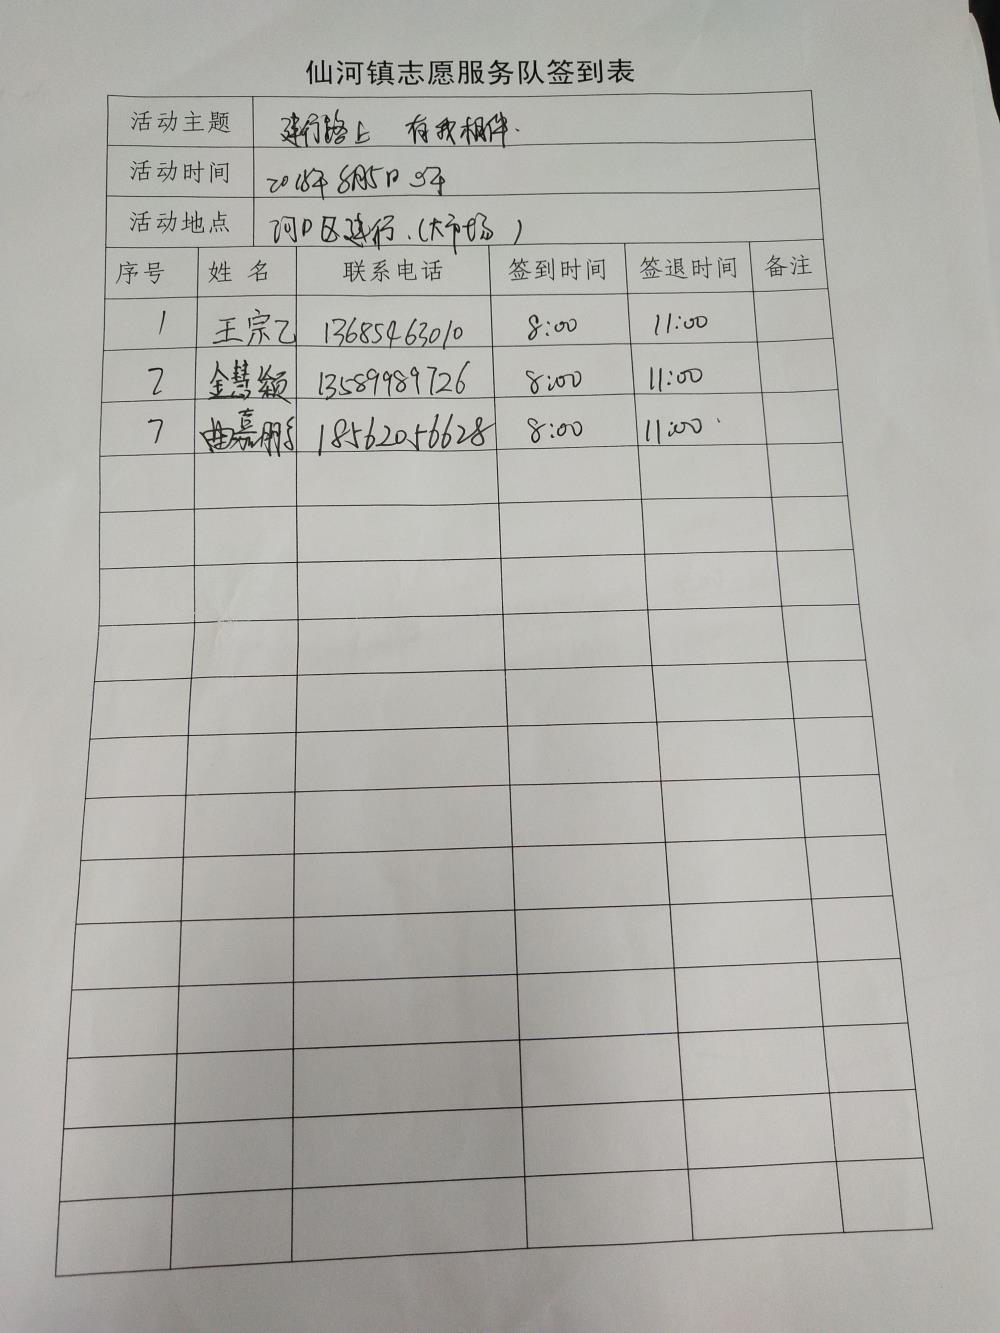 仙河镇志愿服务队签到表
活动主题 建行路上 有我相伴.
活动时间 2018年8月5日 上午
活动地点 河口区建行.(大市场)
序号 姓名 联系电话 签到时间 签退时间 备注
1 王宗乙 13685463010 8:00 11:00
2 金慧颖 13589989726 8:00 11:00
7 曲嘉 18562056628 8:00 11:00